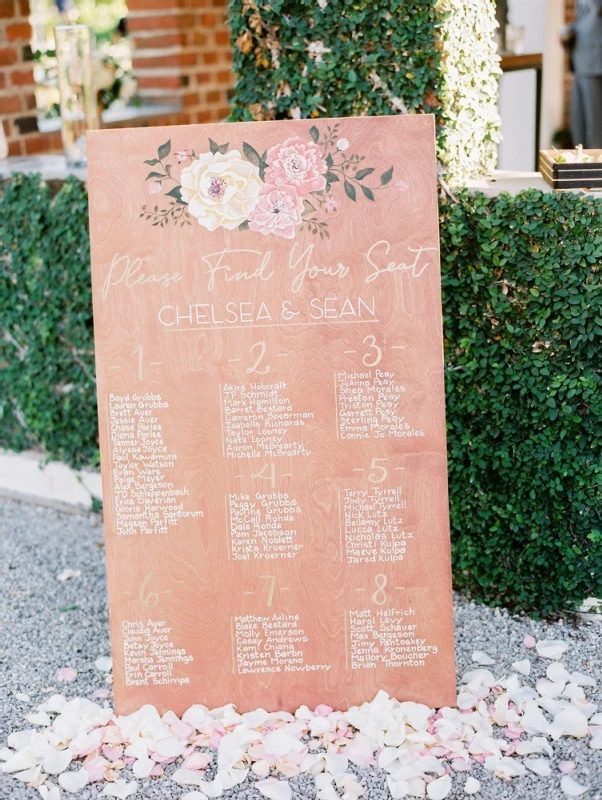 Please Find Your Seat
CHELSEA & SEAN
-1-
Boyd Grubbs
Lauren Grubbs
Brett Auer
Jessie Auer
Chase Parlee
Diana Parlee
Tanner Joyce
Alyssa Joyce
Paul Kawamura
Taylor Watson
Evan Ware
Paige Meyer
Alex Bergeson
JD Schleppenbach
Erica Daverian
Gloria Harwood
Samantha Santorum
Megean Parfitt
John Parfitt
-2-
Akira Hobcraft
JP Schmidt
Mark Hamilton
Barret Bestard
Cameron Spearman
Isabella Richards
Taylor Looney
Nate Looney
Aaron McGrearty
Michelle McGrearty
-3-
Michael Peay
JoAnna Peay
Shea Morales
Preston Peay
Tristan Peay
Garrett Peay
Sterling Peay
Emma Morales
Connie Jo Morales
-4-
Mike Grubbs
Peggy Grubbs
Pauline Grubbs
McCall Rohde
Dale Rohde
Pam Jacobson
Karen Noblett
Krista Kroerner
Joel Kroerner
-5-
Terry Tyrrell
Jody Tyrrell
Michael Tyrrell
Nick Lutz
Bellamy Lutz
Lucca Lutz
Nicholas Lutz
Christi Kulpa
Maeve Kulpa
Jared Kulpa
-6-
Chris Auer
Claudia Auer
John Joyce
Betsy Joyce
Kevin Jennings
Marsha Jennings
Paul Carroll
Erin Carroll
Brent Schirripa
-7-
Matthew Axline
Blake Bestard
Molly Emerson
Casey Andrews
Kami Chiang
Kristen Baron
Jayme Moreno
Lawrence Newberry
-8-
Matt Helfrich
Harol Levy
Scott Schauer
Max Bergeson
Jimy
Jenna Kronenberg
Mallory Boucher
Brian Thornton